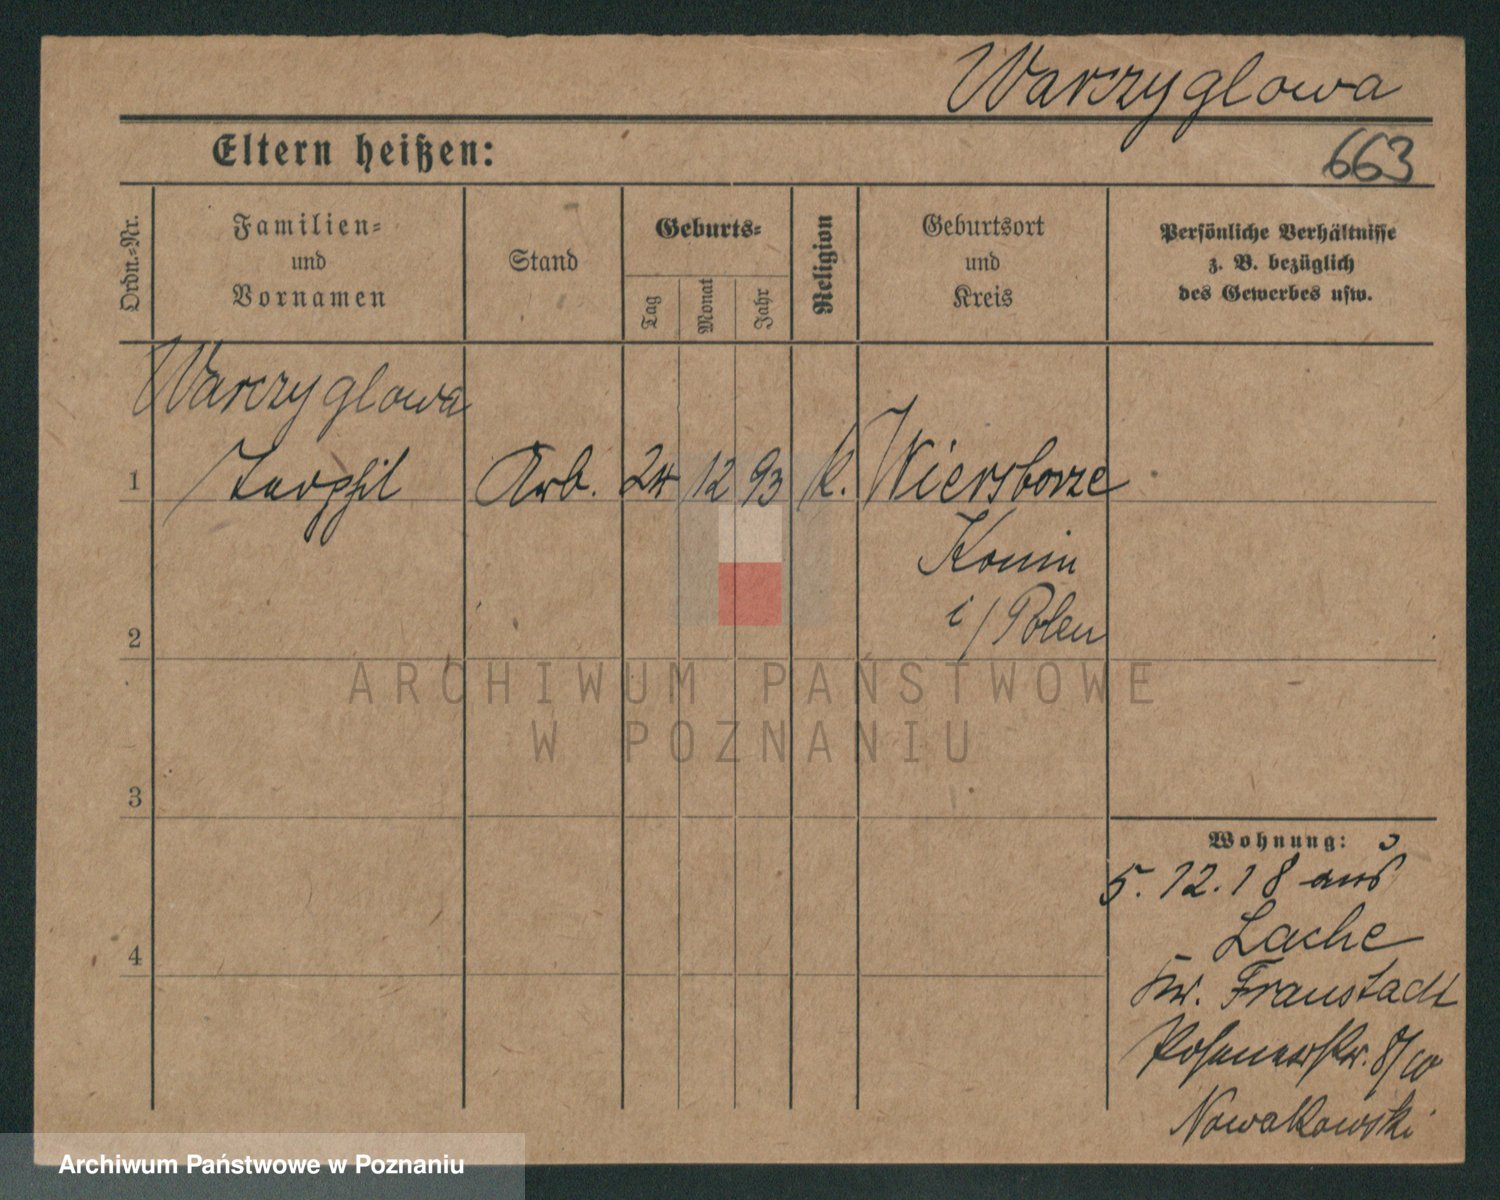 Warczyglowa
Eltern heißen:
663
Ordn.-Nr.
Familien-
und
Vornamen
Stand
Geburts-
Tag
Monat
Jahr
Religion
Geburtsort
und
Kreis
Persönliche Verhältnisse
z. B. bezüglich
des Gewerbes usw.
Warczyglowa
1
Arb. 24 12 93 k. Wiersborze
Konin
i/Polen
2
ARCHIWUM PAŃSTWOWE
W POZNANIU
3
Wohnung:
5. 12. 18 aus
Lache
Kr. Fraustadt
4
Posenerstr. 8/10
Nowakowski
Archiwum Państwowe w Poznaniu